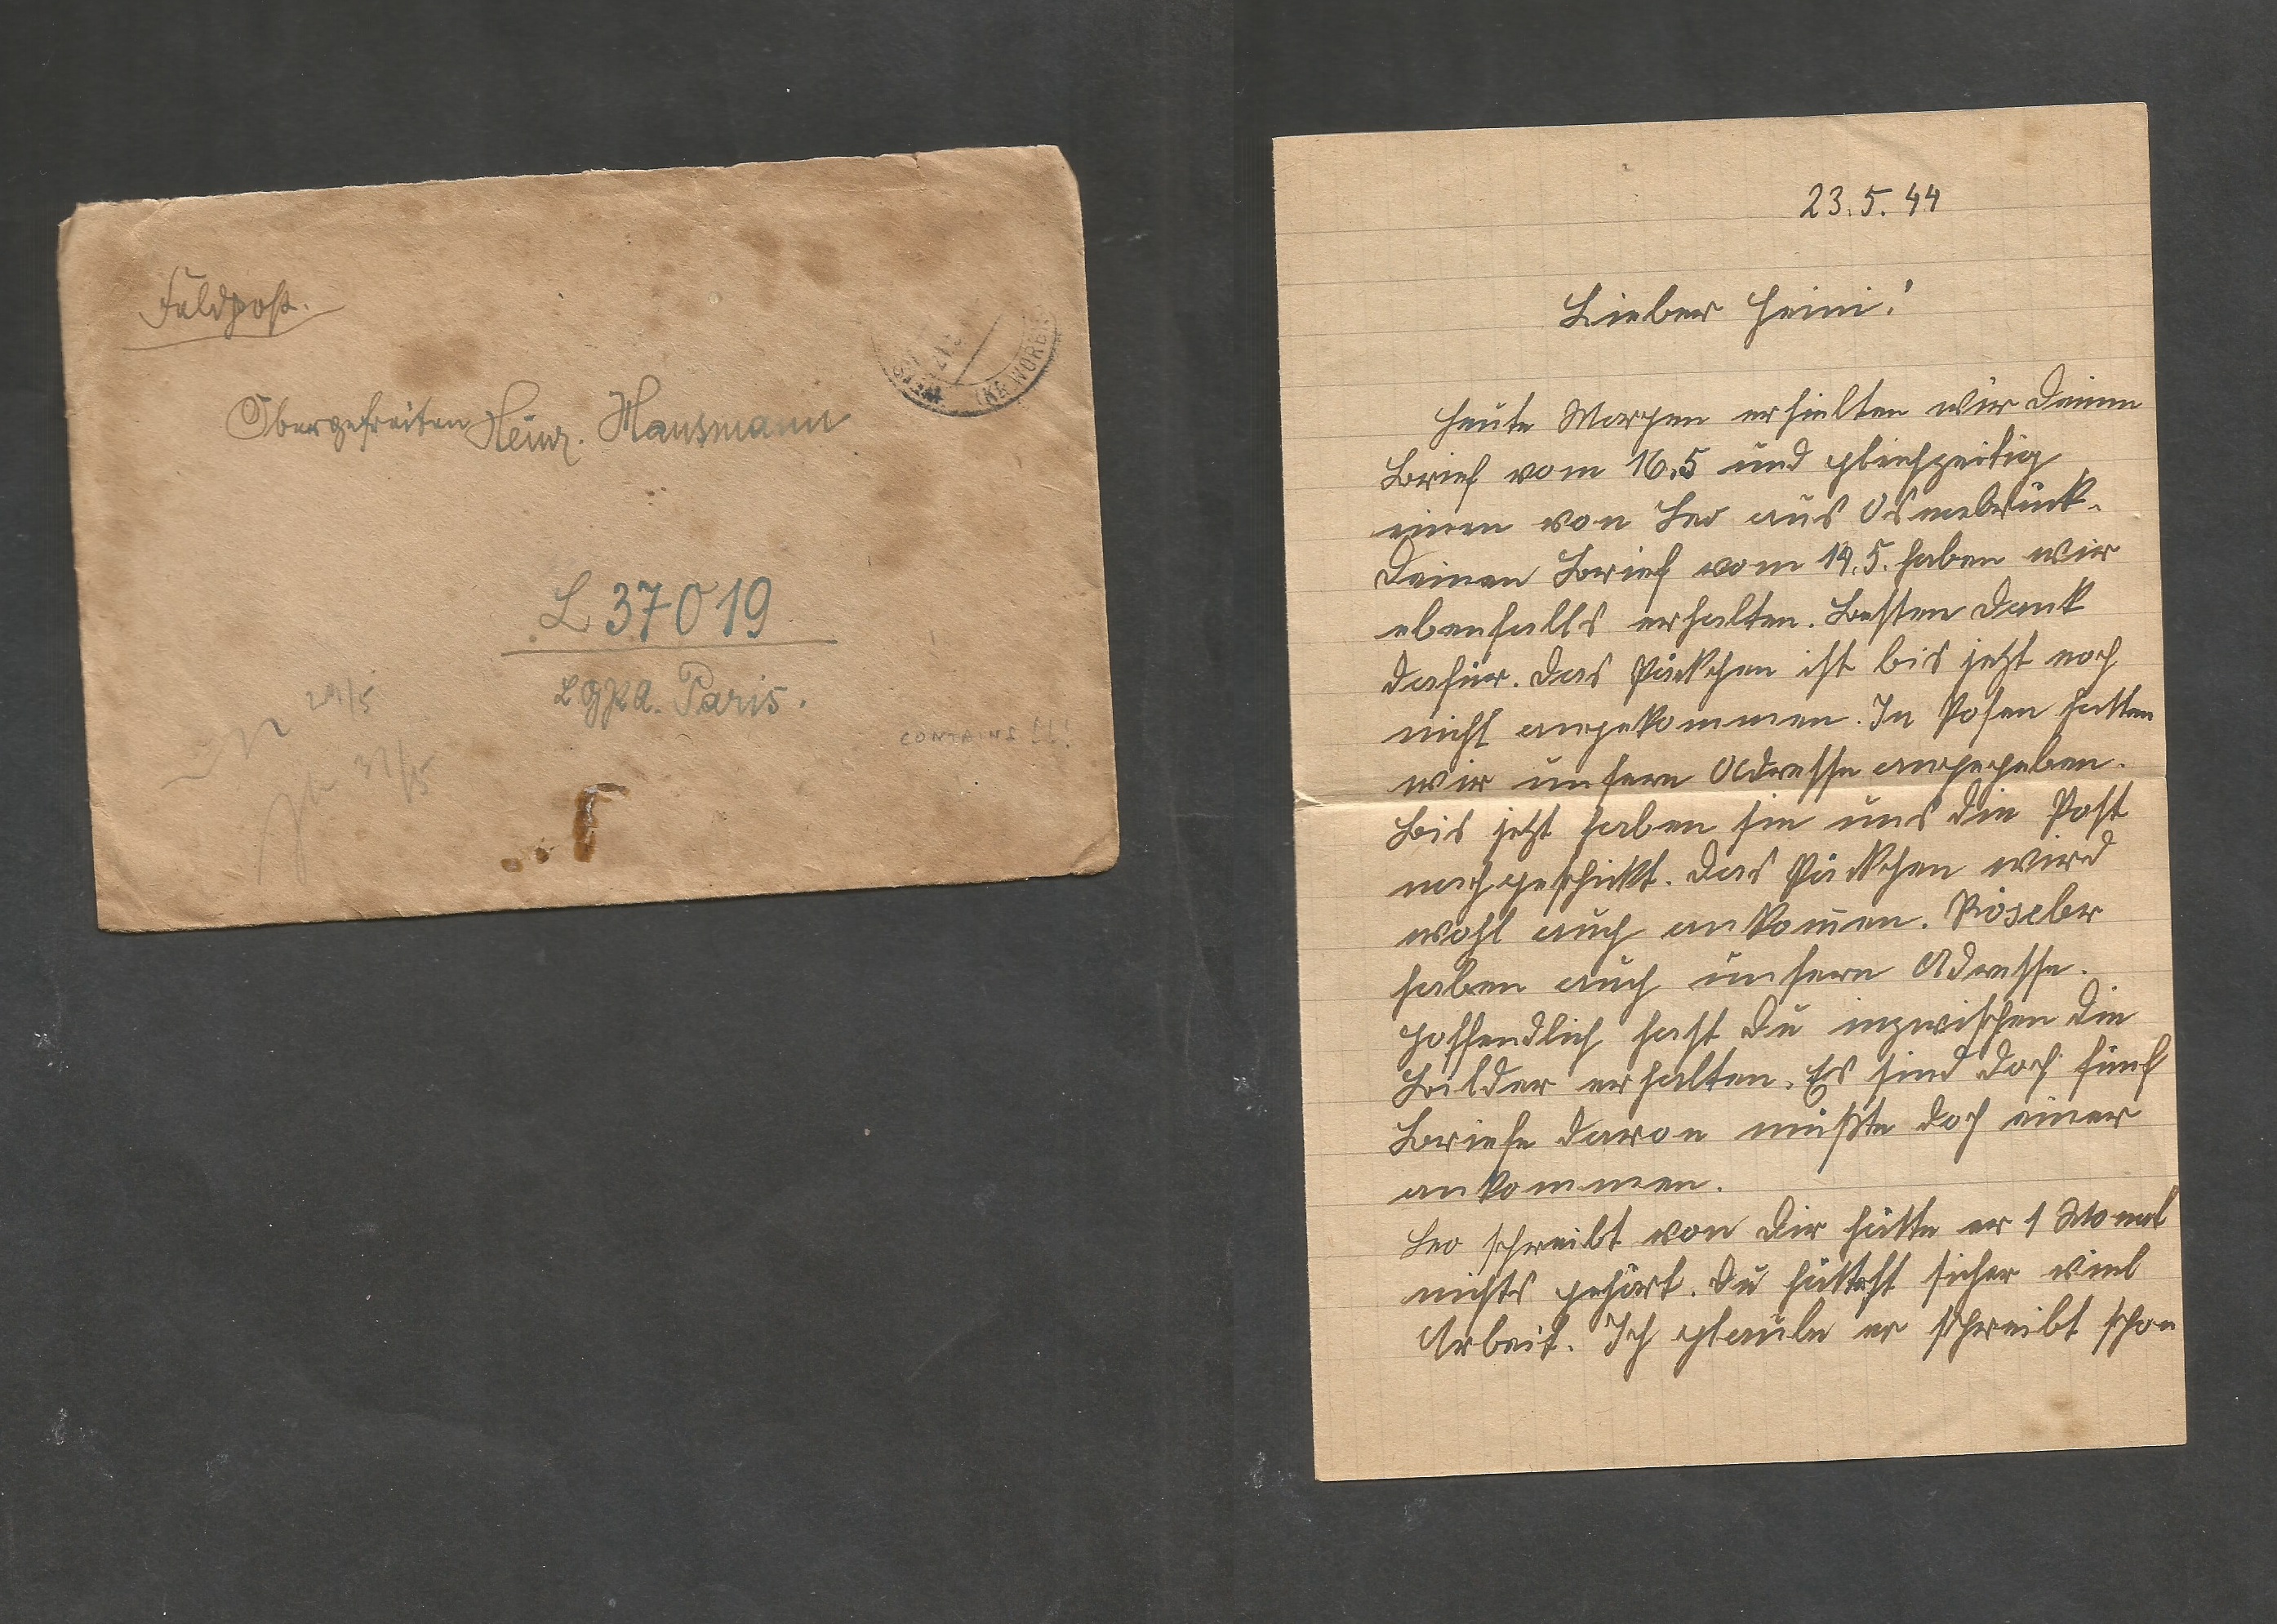 Feldpost.
Obergefreiten Heinz. Hausmann
L 37019
LGPA. Paris.
(KR. WORB
24/5
31/5
CONTAINS
23.5.44
Lieber Heini!
Heute Morgen erhielten wir Deinen
Brief vom 16.5 und gleichzeitig
einen von Leo aus Osnabrück.
Deinen Brief vom 14.5. haben wir
ebenfalls erhalten. Besten Dank
dafür. Das Päckchen ist bis jetzt noch
nicht angekommen. In Posen hatten
wir unsere Adresse angegeben.
Bis jetzt haben sie uns die Post
nachgeschickt. Das Päckchen wird
wohl auch ankom̅en. Röseler
haben auch unsere Adresse.
Hoffendlich hast Du inzwischen die
Bilder erhalten. Es sind doch fünf
Briefe davon müßte doch einer
ankommen.
Leo schreibt von Dir hätte er 1 Monat
nichts gehört. Du hättest sicher viel
Arbeit. Ich glaube er schreibt schon